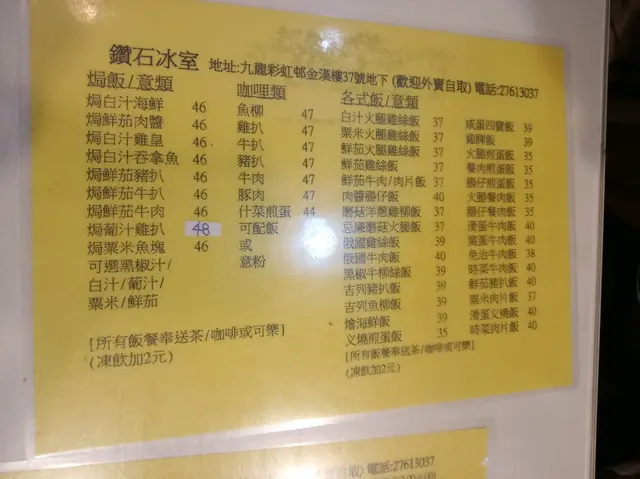 鑽石冰室 地址:九龍彩虹邨金漢樓37號地下 (歡迎外賣自取) 電話:27613037
焗飯/意類
焗白汁海鮮 46
焗鮮茄肉醬 46
焗白汁雞皇 46
焗白汁吞拿魚 46
焗鮮茄豬扒 46
焗鮮茄牛扒 46
焗鮮茄牛肉 46
焗葡汁雞扒 48
焗粟米魚塊 46
可選黑椒汁/
白汁/葡汁/
粟米/鮮茄
[所有飯餐奉送茶/咖啡或可樂]
(凍飲加2元)
咖哩類
魚柳 47
雞扒 47
牛扒 47
豬扒 47
牛肉 47
豚肉 47
什菜煎蛋 44
可配飯
或
意粉
各式飯/意類
白汁火腿雞絲飯 37
粟米火腿雞絲飯 37
鮮茄火腿雞絲飯 37
鮮茄雞絲飯 37
鮮茄牛肉/肉片飯 37
肉醬腸仔飯 40
蘑菇洋蔥雞柳飯 37
忌廉蘑菇火腿飯 37
俄國雞絲飯 39
俄國牛肉飯 40
黑椒牛柳絲飯 39
吉列豬扒飯 39
吉列魚柳飯 39
燴海鮮飯 39
叉燒煎蛋飯 35
[所有飯餐奉送茶/咖啡或可樂]
(凍飲加2元)
咸蛋四寶飯 39
雞髀飯 39
火腿煎蛋飯 35
餐肉煎蛋飯 35
腸仔煎蛋飯 35
火腿餐肉飯 35
腸仔餐肉飯 35
滑蛋牛肉飯 40
窩蛋牛肉飯 40
免治牛肉飯 38
時菜牛肉飯 40
鮮茄豬扒飯 40
粟米肉片飯 37
滑蛋叉燒飯 40
時菜肉片飯 40
自取) 電話:27613037